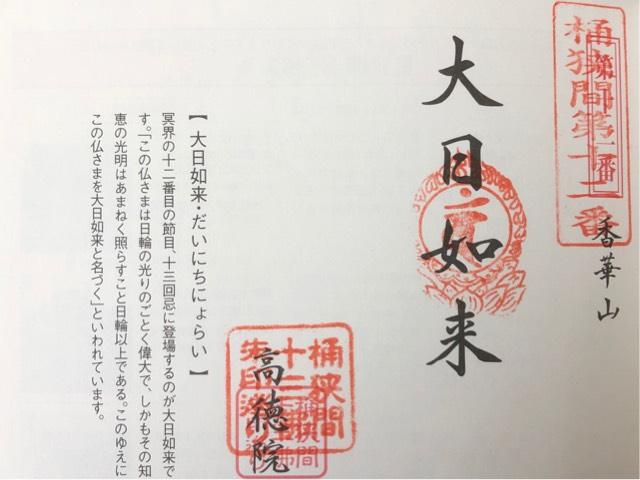 桶狭間第十二番
香華山
大日如来
高徳院
桶狭間
十二
【 大日如来・だいにちにょらい 】
冥界の十二番目の節目、十三回忌に登場するのが大日如来で
す。「この仏さまは日輪の光りのごとく偉大で、しかもその知
恵の光明はあまねく照らすこと日輪以上である。このゆえに
この仏さまを大日如来と名づく」といわれています。